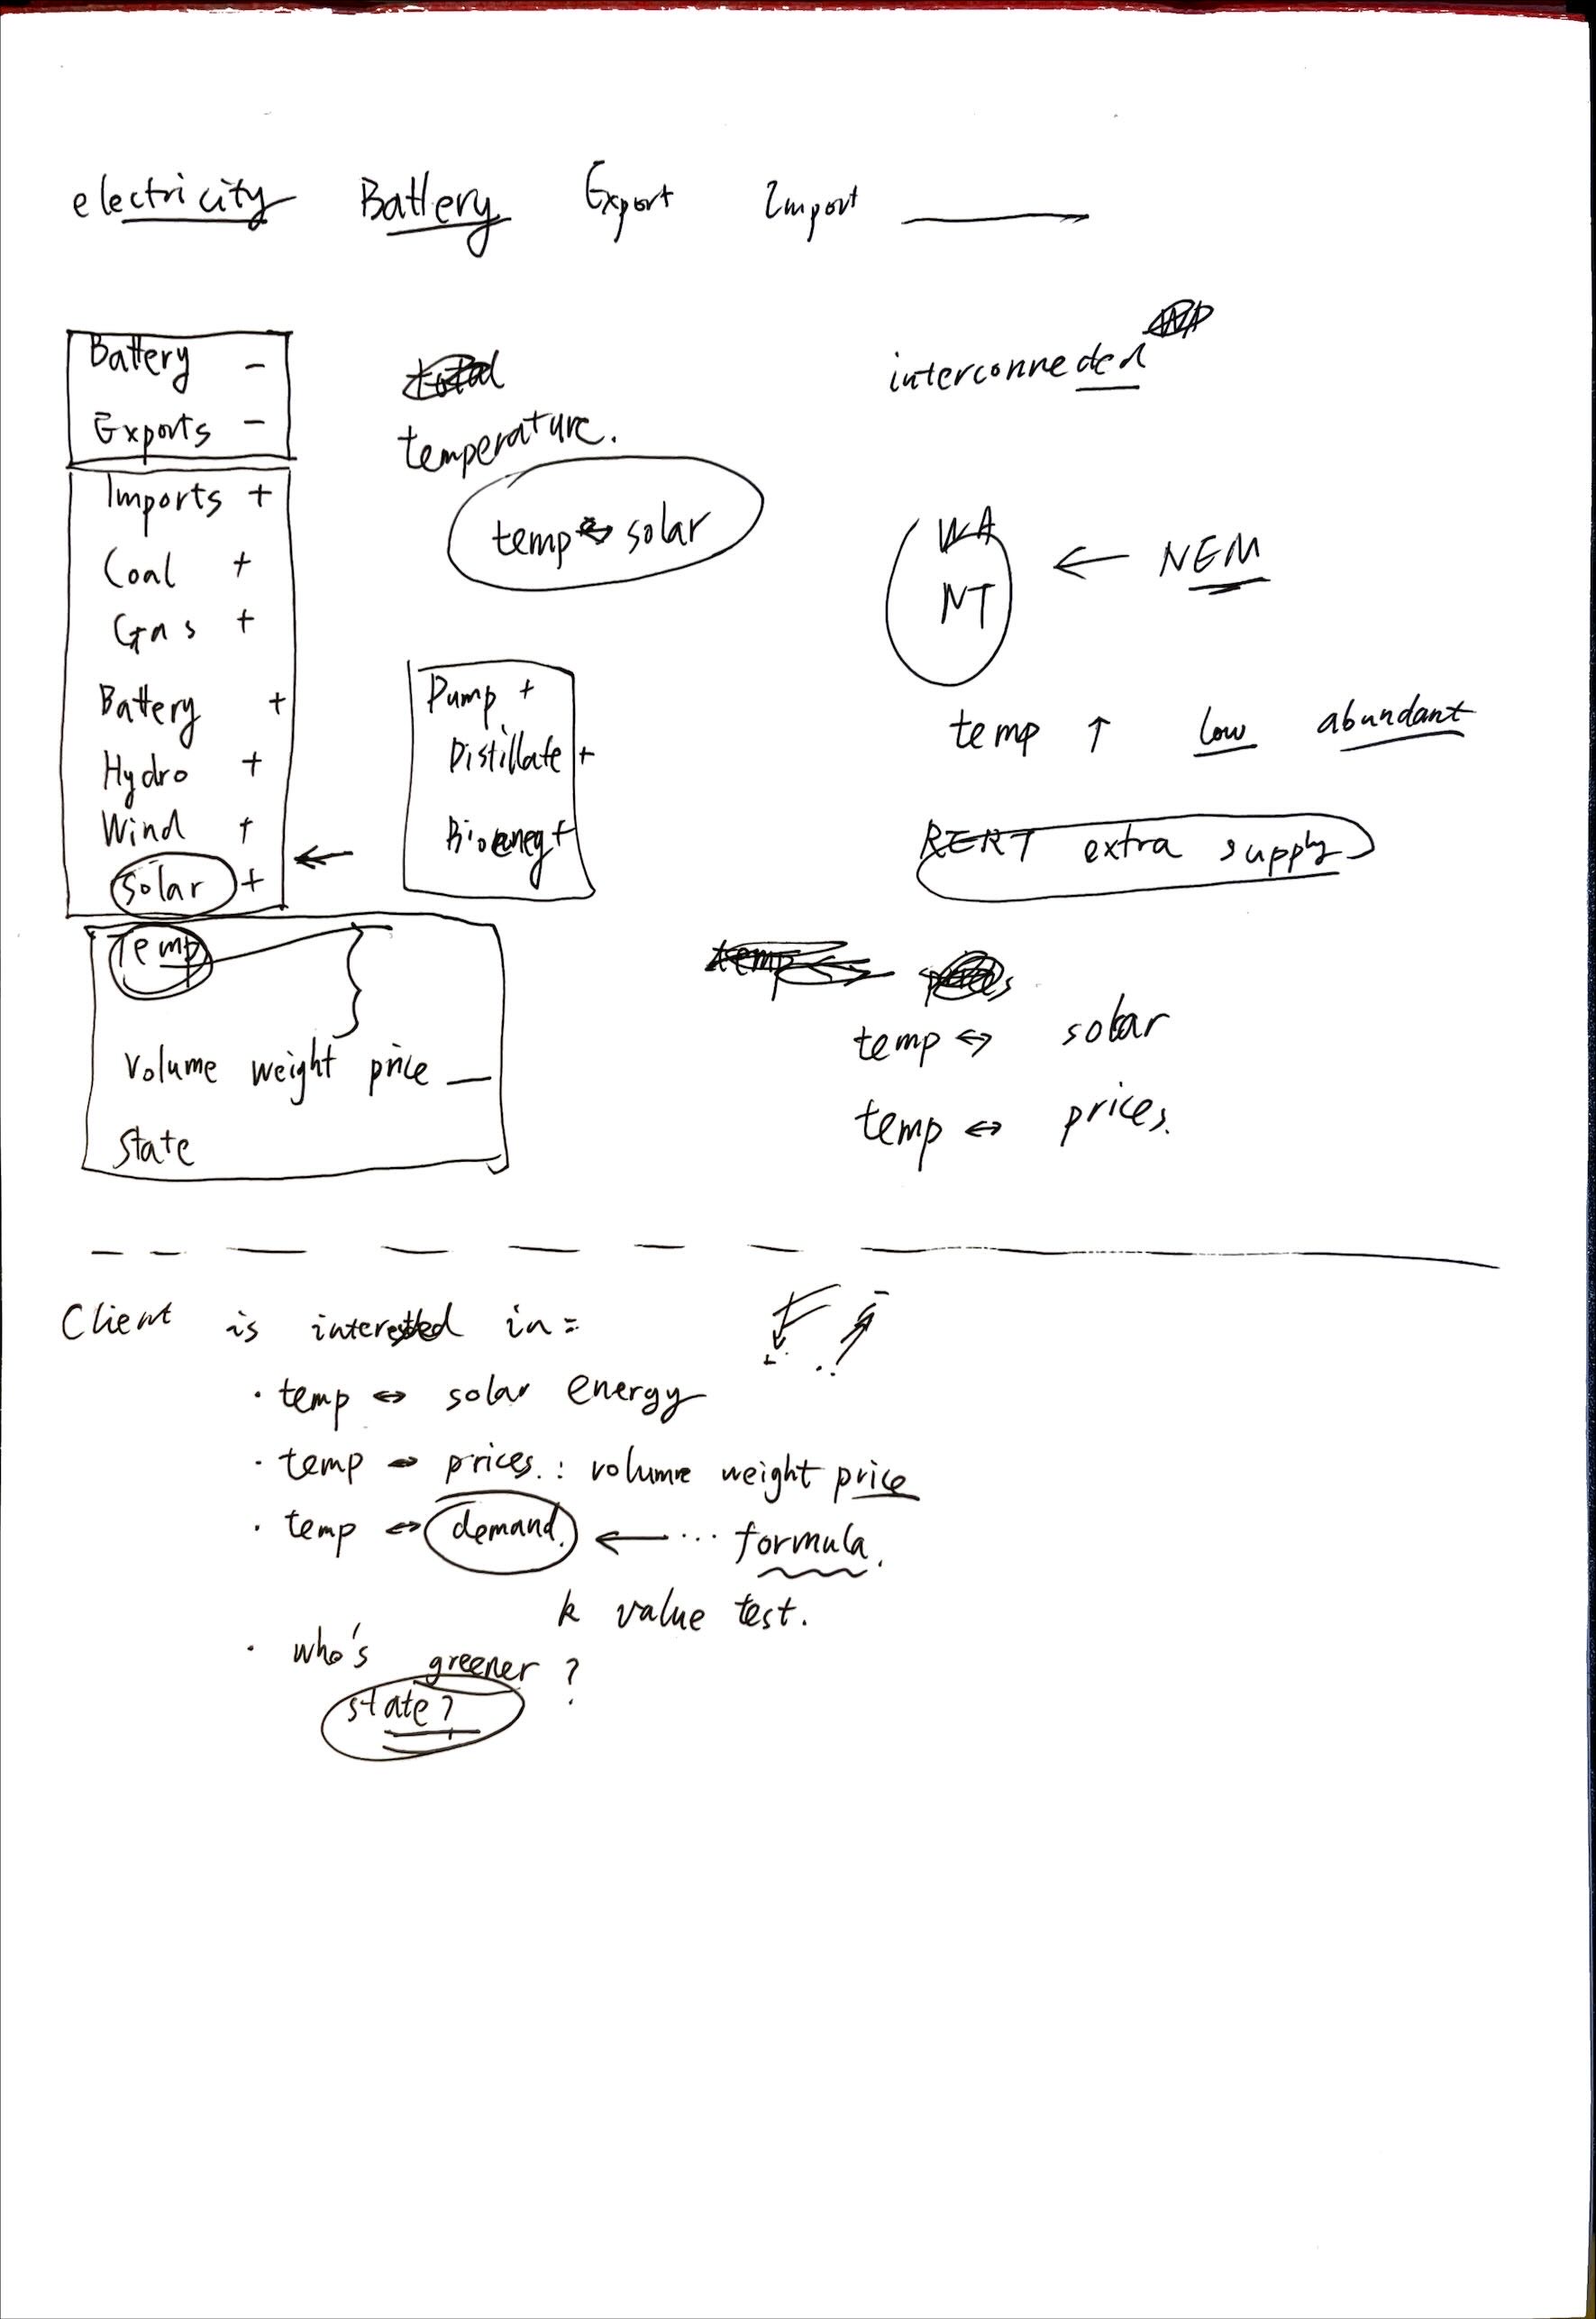 electricity Battery Export Import
Battery -
Exports -
Imports +
Coal +
Gas +
Battery +
Hydro +
Wind +
solar +
temperature.
temp ↔ solar
Pump +
Distillate +
Temp
volume weight price
state
interconneded
WA ← NEM
NT
temp ↑ low abundant
RERT extra supply
temp ↔ solar
temp ↔ prices.
Client is interested in =
· temp ↔ solar energy
· temp ↔ prices. : volume weight price
· temp ↔ demand. ← ... formula.
k value test.
· who's greener ?
state?